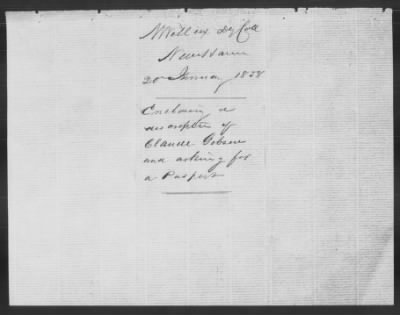 Dy Coll
New Haven
20 January 1858
Enclosing a
description of
Claude Gibson
and asking for
a Passport